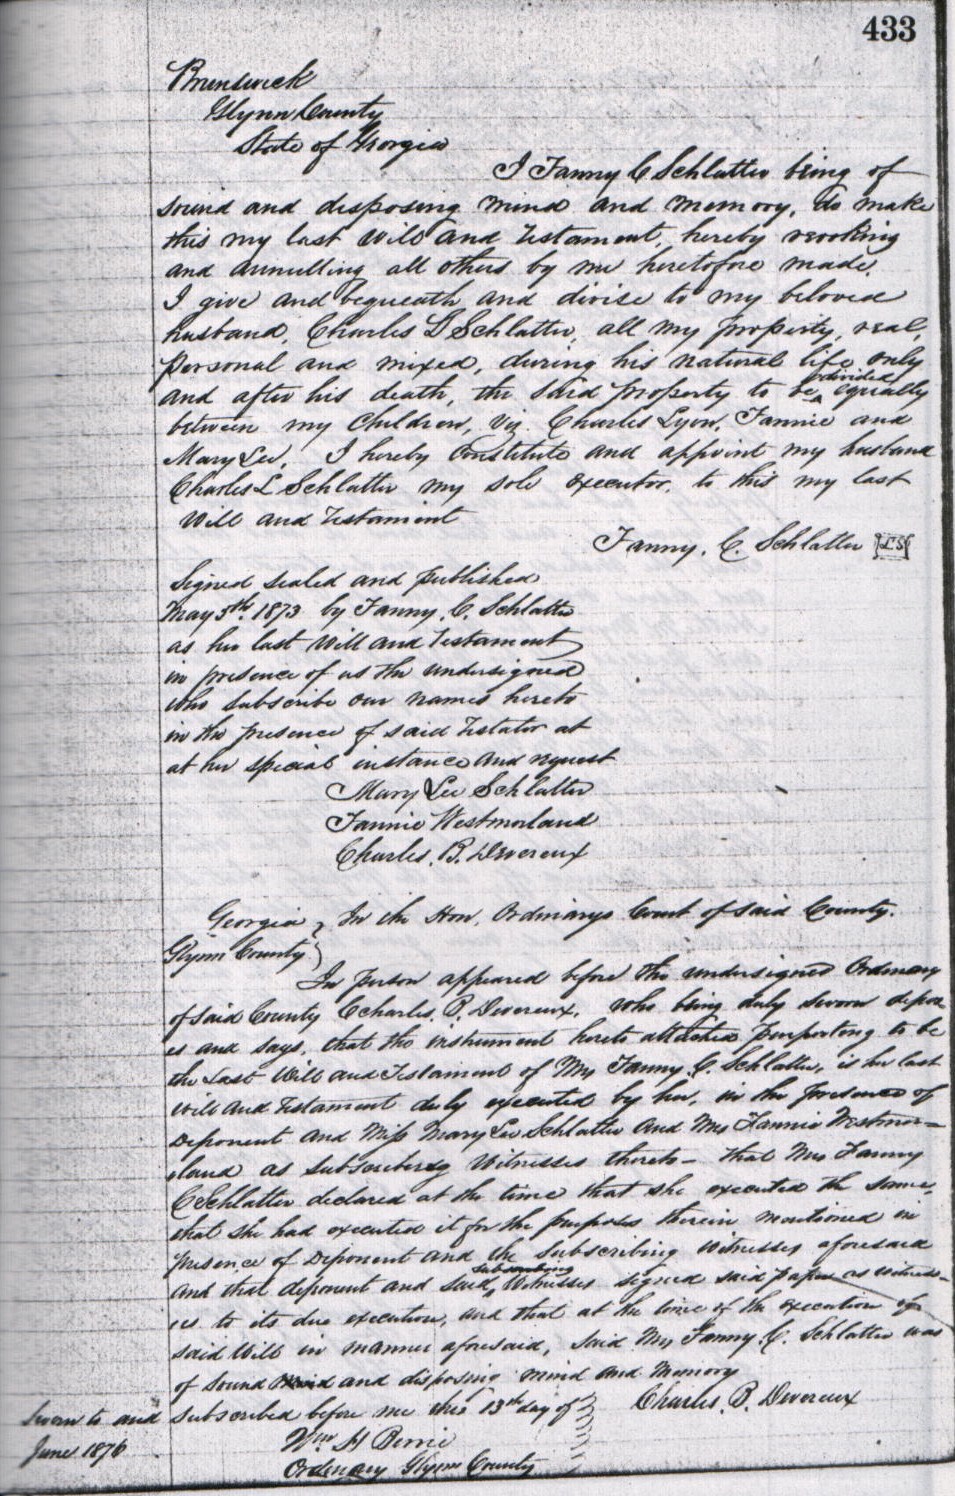 433
Brunswick
Glynn County
State of Georgia
I Fanny C Schlatter being of
sound and disposing mind and memory, do make
this my last Will and Testament, hereby revoking
and annulling all others by me heretofore made.
I give and bequeath and divise to my beloved
husband, Charles L Schlatter, all my property, real,
personal and mixed, during his natural life only
and after his death, the said property to be divided equally
between my children, viz. Charles Lyon, Fannie and
Mary Lee. I hereby constitute and appoint my husband
Charles L Schlatter my sole executor, to this my last
Will and Testament
Fanny. C. Schlatter LS
Signed sealed and published
May 5th. 1873 by Fanny. C. Schlatter
as her last Will and Testament
in presence of us the undersigned
who subscribe our names hereto
in the presence of said Testator at
at her special instance and request
Mary Lee Schlatter
Fannie Westmorland
Charles. B. Devereux
Georgia } In the Hon. Ordinarys Court of said County.
Glynn County }
In person appeared before the undersigned Ordinary
of said County Ccharles. B. Devereux, who being duly sworn depos
es and says, that the instrument hereto attached purporting to be
the Last Will and Testament of Mrs Fanny. C. Schlatter, is her last
will and Testament duly executed by her, in the presence of
Deponent and Miss Mary Lee Schlatter and Mrs Fannie Westmor-
land as subscribersg Witnesses thereto - that Mrs Fanny
C Schlatter declared at the time that she executed the same,
that she had executed it for the purposes therein mentioned in
presence of Deponent and the Subscribing Witnesses aforesaid
and that deponent and said subscribing Witnesses signed said paper as witness-
es to its due execution, and that at the time of the execution of
said Will in manner aforesaid, said Mrs Fanny. C. Schlatter was
of sound and disposing mind and Memory
Sworn to and subscribed before me this 13th day of } Charles. B. Devereux
June 1876
Wm H Berrie
Ordenary Glynn County